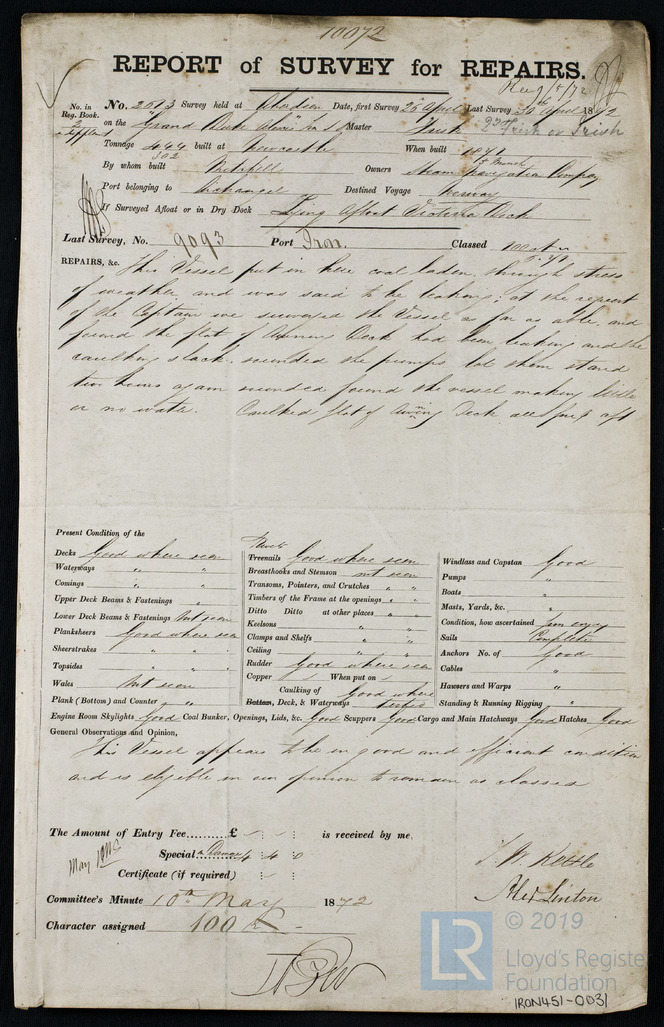 10072
REPORT of SURVEY for REPAIRS.
No. in Reg. Book.
No. 2613 Survey held at Aberdeen Date, first Survey 26 April Last Survey 30th April 1872
on the "Grand Duke Alexis" Master Irish
Tonnage 444 built at Newcastle When built 1871
502
By whom built Mitchell Owners Steam Navigation Company
Port belonging to Archangel Destined Voyage
If Surveyed Afloat or in Dry Dock Lying Afloat Victoria Dock
Last Survey, No. 9093 Port Iron. Classed 100
REPAIRS, &c. This Vessel put in here coal laden, through stress
of weather, and was said to be leaking; at the request
of the Captain we surveyed the Vessel as far as able, and
found the flat of Awning Deck had been leaking and the
caulking slack. sounded the pumps let them stand
two hours again sounded found the vessel making little
or no water. Caulked flat of Awning Deck all fore & aft
Present Condition of the
Decks Good where seen
Waterways " "
Comings " "
Upper Deck Beams & Fastenings "
Lower Deck Beams & Fastenings Not seen
Planksheers Good where seen
Sheerstrakes " "
Topsides " "
Wales Not seen
Plank (Bottom) and Counter "
Rivets
Treenails Good where seen
Breasthooks and Stemson not seen
Transoms, Pointers, and Crutches " "
Timbers of the Frame at the openings " "
Ditto Ditto at other places " "
Keelsons " "
Clamps and Shelfs " "
Ceiling " "
Rudder Good where seen
Copper When put on
Caulking of Good where
Bottom, Deck, & Waterways
Windlass and Capstan Good
Pumps "
Boats "
Masts, Yards, &c. "
Condition, how ascertained from enqy
Sails Complete
Anchors No. of Good
Cables "
Hawsers and Warps "
Standing & Running Rigging "
Engine Room Skylights Good Coal Bunker, Openings, Lids, &c. Good Scuppers Good Cargo and Main Hatchways Good Hatches Good
General Observations and Opinion,
This Vessel appears to be in good and efficient condition
and is eligible in our opinion to remain as classed
The Amount of Entry Fee......... £ is received by me,
Special & Damage 4 4 0
Certificate (if required)
Committee's Minute 10th May 1872
Character assigned 100 A
T. W. Kettle
Alex Linton
LR
© 2019
Lloyd's Register
Foundation
IRON451-0031